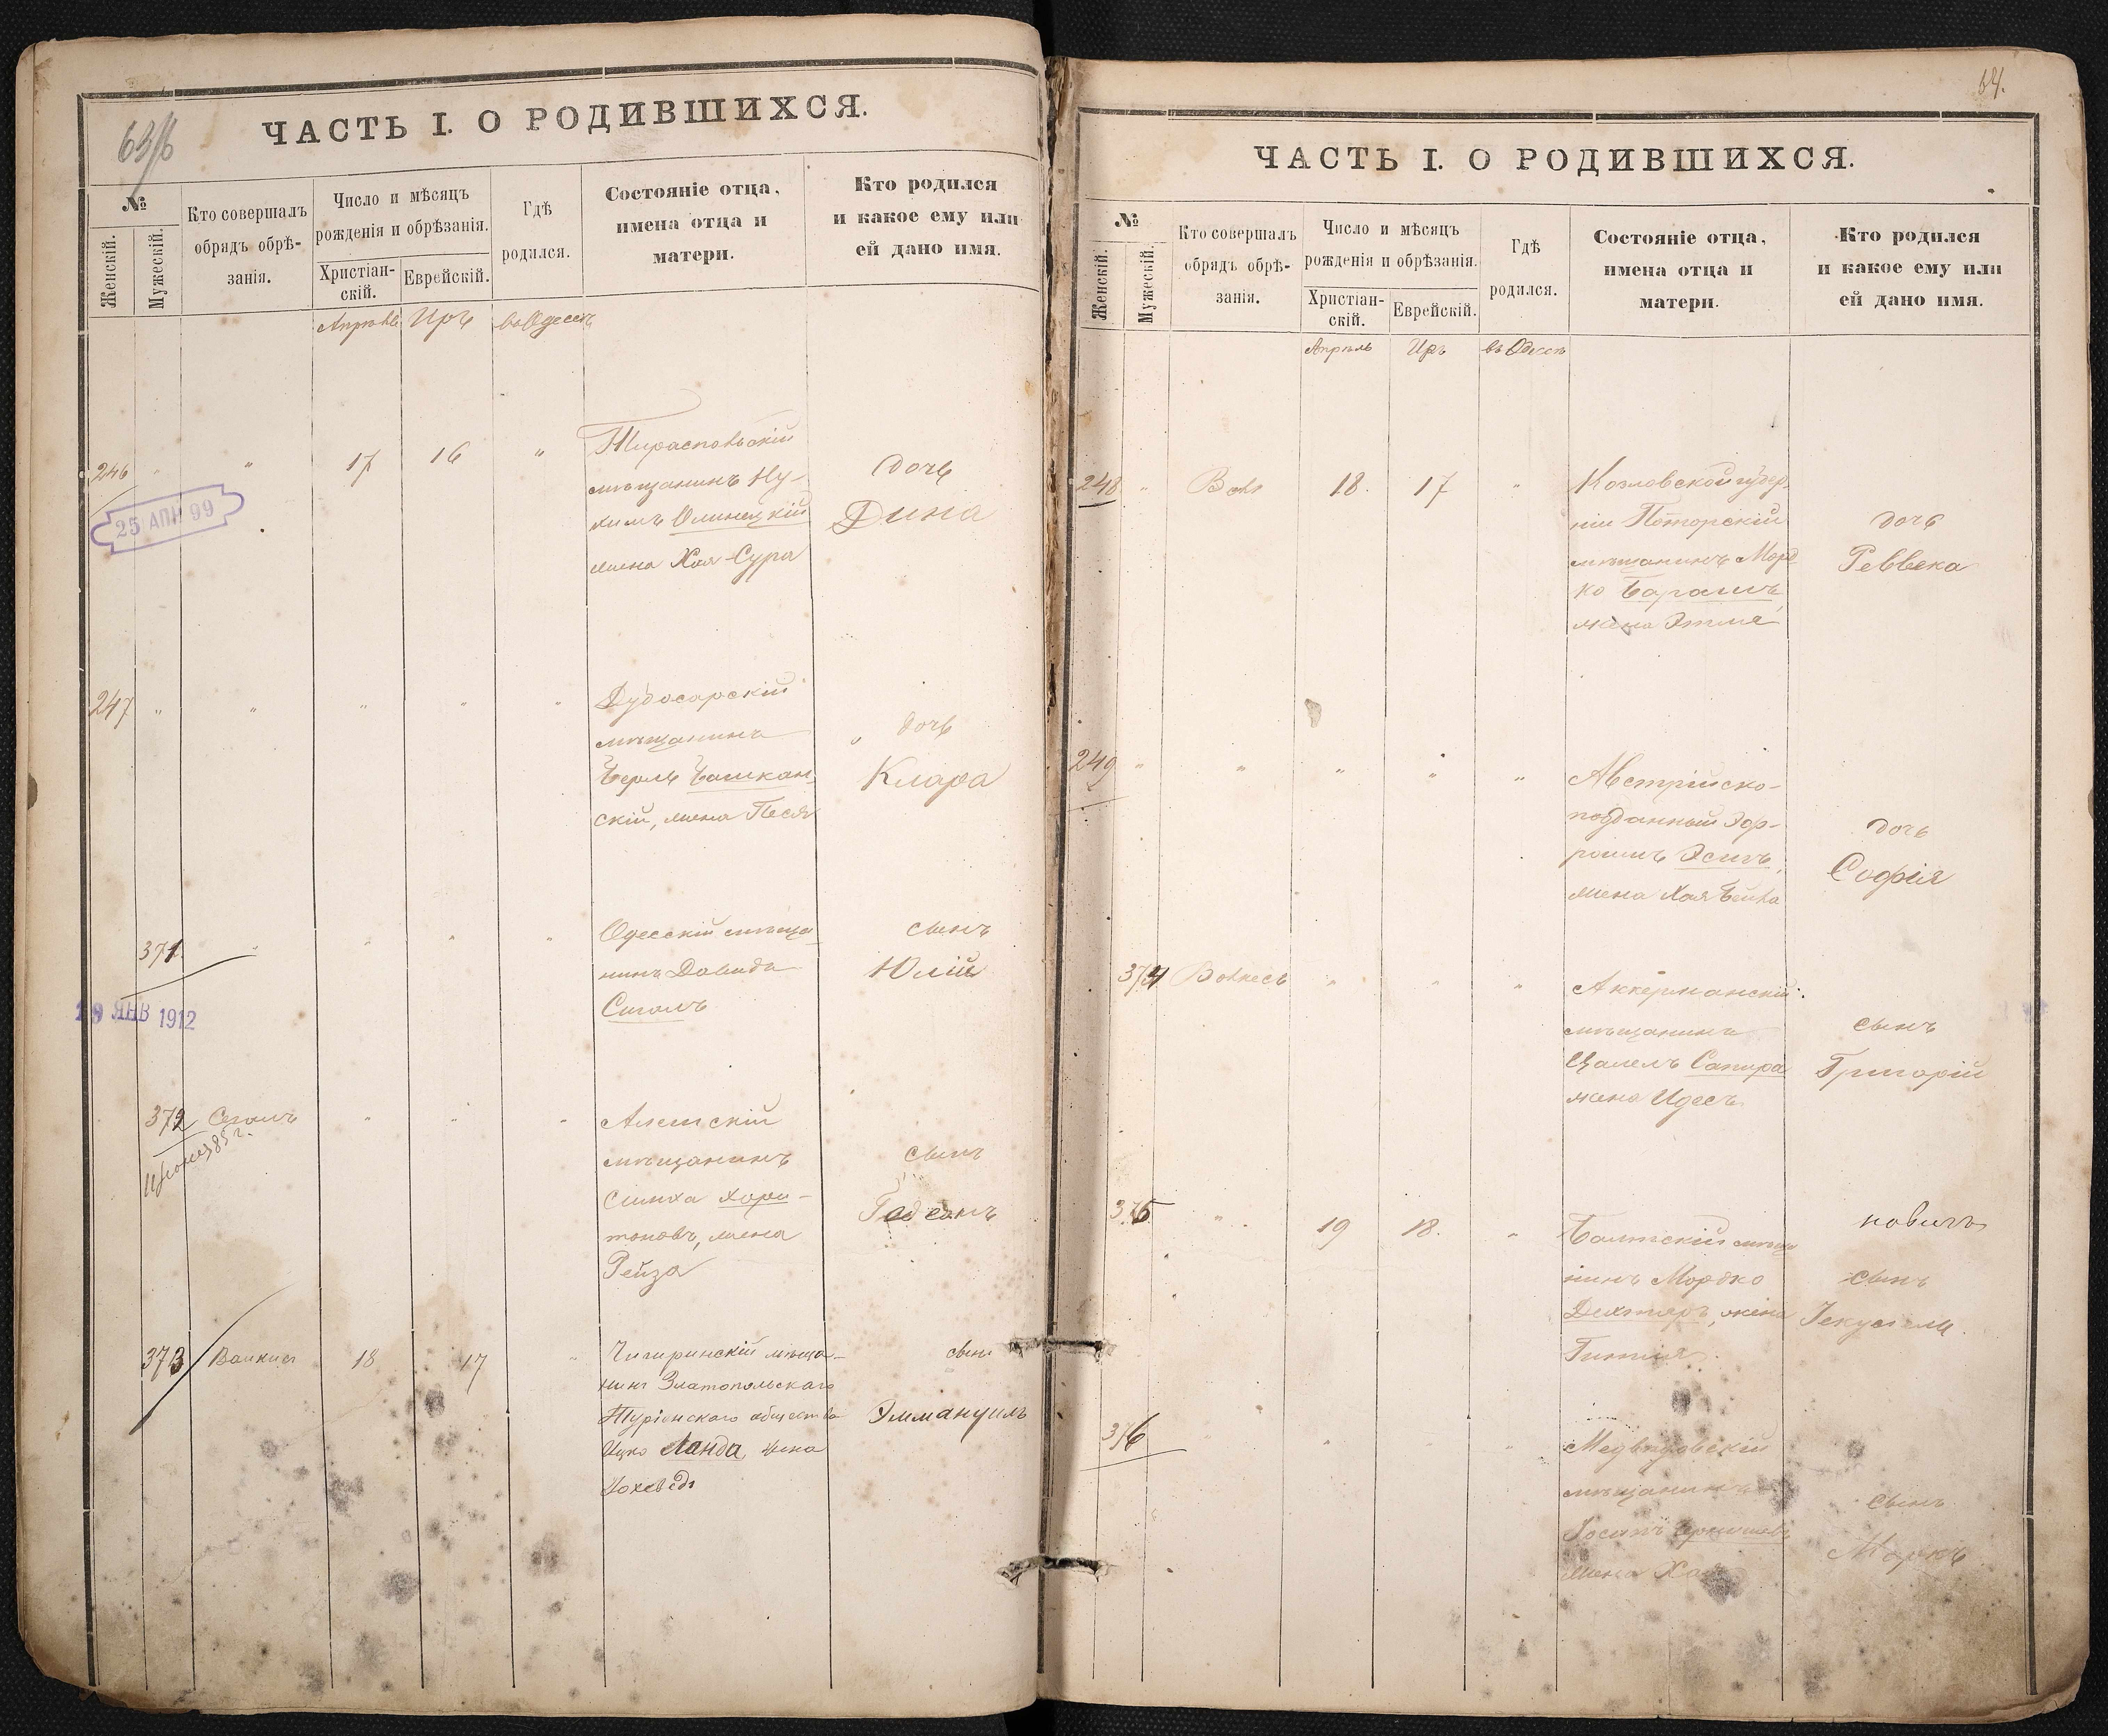 ЧАСТЬ I. О РОДИВШИХСЯ.
№
Женскій.
Мужескій.
Кто совершалъ
обрядъ обрѣ-
занія.
Число и мѣсяцъ
рожденія и обрѣзанія.
Христіан-
скій.
Еврейскій.
Гдѣ
родился.
Состояніе отца,
имена отца и
матери.
Кто родился
и какое ему или
ей дано имя.
Апрѣль Иръ въ Одессѣ
246 " " 17 16 "
Тираспольскій
мѣщанинъ Ну-
химъ Олинецкій
жена Хая-Сура
дочь
Дина
25 АПР 99
247 " " " " "
Дубосарскій
мѣщанинъ
Берль Башкан-
скій, жена Песя
" дочь
Клара
371 " " " "
Одесскій мѣща-
нинъ Давидъ
Сигалъ
сынъ
Юлій
ЯНВ 1912
372 Сегалъ " " "
мѣщанинъ
Симха Хари-
тоновъ, жена
Рейза
сынъ
Гедеонъ
373 18 17 "
Чигиринскій мѣща-
нинъ Златопольскаго
общества
Ицко Ланда жена
Іохевéдъ
сынъ
Эммануилъ
64.
ЧАСТЬ I. О РОДИВШИХСЯ.
№
Женскій.
Мужескій.
Кто совершалъ
обрядъ обрѣ-
занія.
Число и мѣсяцъ
рожденія и обрѣзанія.
Христіан-
скій.
Еврейскій.
Гдѣ
родился.
Состояніе отца,
имена отца и
матери.
Кто родился
и какое ему или
ей дано имя.
Апрѣль Иръ въ Одессѣ
248 " 18. 17 "
губер-
ніи
мѣщанинъМорд
ко Барашъ
жена
дочь
Реввека
249 " " " " "
Австрійско-
подданный Эф-
роимъ
жена Хая Бейла
дочь
Софія
374 " " "
Аккерманскій
мѣщанинъ
Цалелъ Сапира
жена Идесъ
сынъ
Григорій
375 " 19 18. "
Балтскій мѣща
нинъ Мордко
Дехтяръ, жена
Гитля
сынъ
376 " " "
Медвѣдовскій
мѣщанинъ
Іосипъ
жена Хая
сынъ
Маркъ